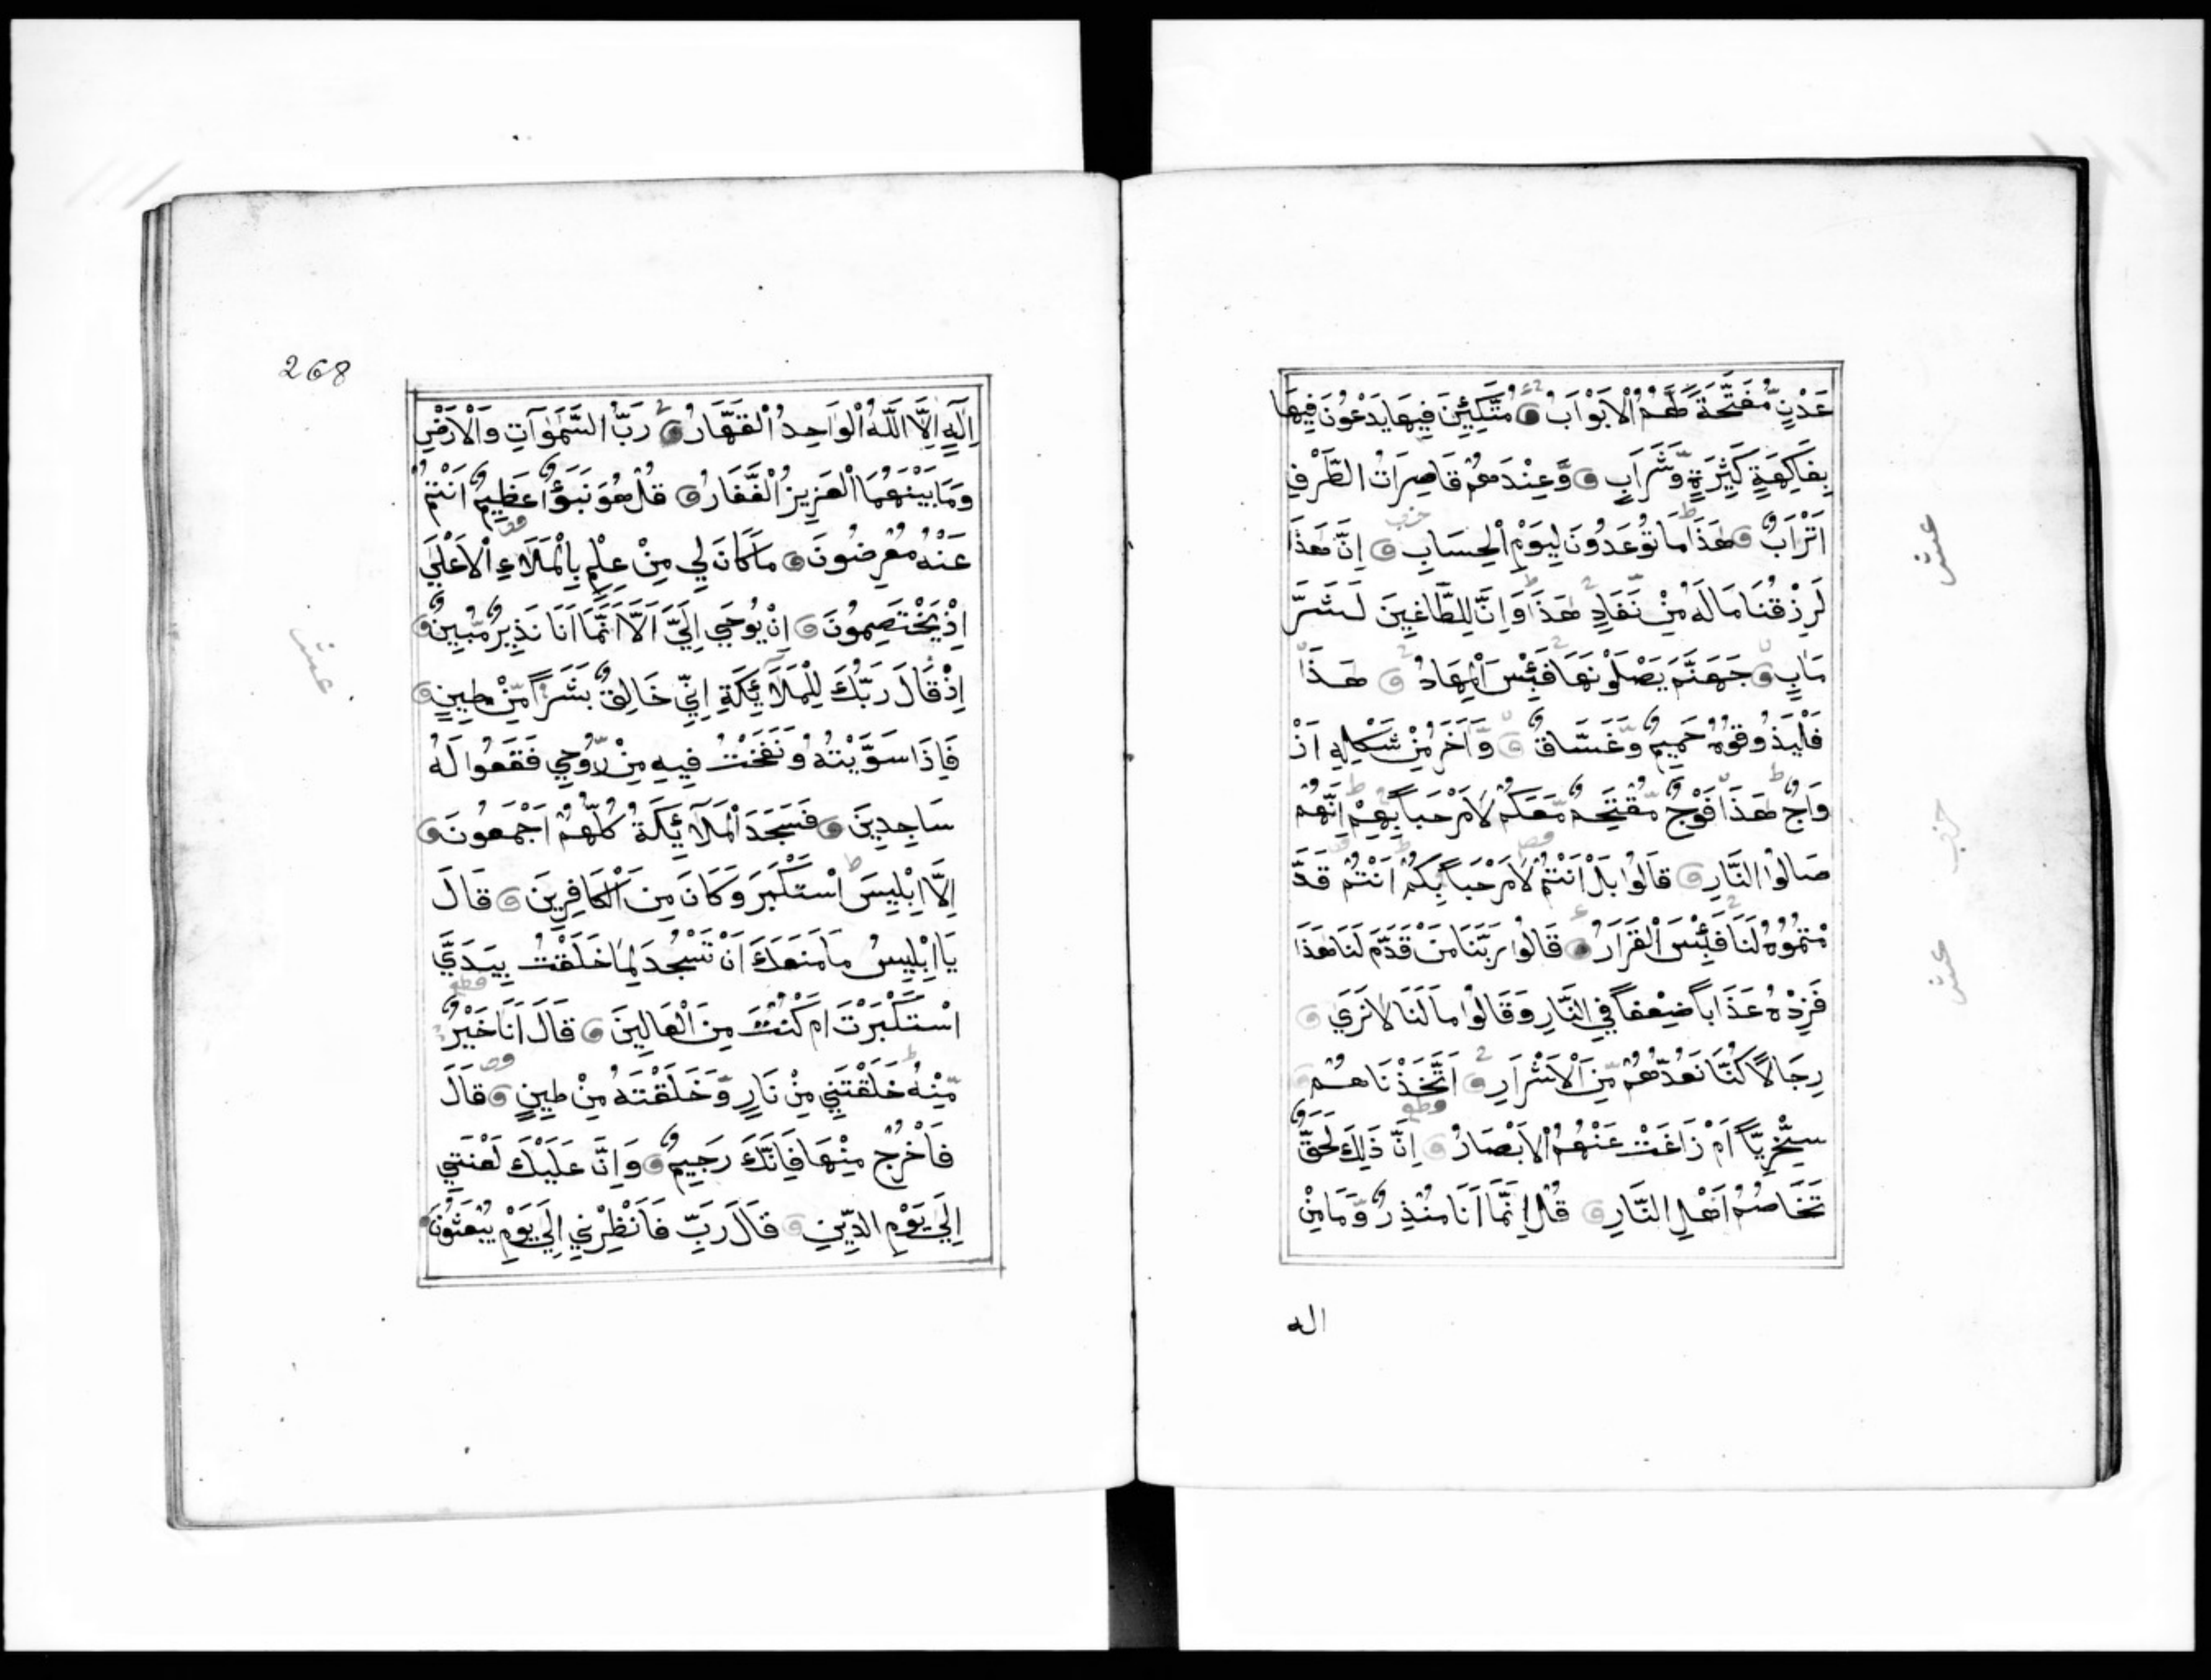 عَدْنٍ مُّفَتَّحَةً لَّهُمُ الْاَبْوَابُ مُتَّكِئِينَ فِيهَا يَدْعُونَ فِيهَا
بِفَاكِهَةٍ كَثِيرَةٍ وَّشَرَابٍ وَّعِنْدَهُمْ قَاصِرَاتُ الطَّرْفِ
اَتْرَابٌ هَذَا مَا تُوعَدُونَ لِيَوْمِ الْحِسَابِ اِنَّ هَذَا
لَرِزْقُنَا مَا لَهُ مِنْ نَّفَادٍ هَذَا وَاِنَّ لِلطَّاغِينَ لَشَرَّ
مَاٰبٍ جَهَنَّمَ يَصْلَوْنَهَا فَبِئْسَ الْمِهَادُ هَذَا
فَلْيَذُوقُوهُ حَمِيمٌ وَّغَسَّاقٌ وَّاٰخَرُ مِنْ شَكْلِهِ اَزْ
وَاجٌ هَذَا فَوْجٌ مُّقْتَحِمٌ مَّعَكُمْ لَا مَرْحَباً بِهِمْ اِنَّهُمْ
صَالُوا النَّارِ قَالُوا بَلْ اَنْتُمْ لَا مَرْحَباً بِكُمْ اَنْتُمْ قَدَّ
مْتُمُوهُ لَنَا فَبِئْسَ الْقَرَارُ قَالُوا رَبَّنَا مَنْ قَدَّمَ لَنَا هَذَا
فَزِدْهُ عَذَاباً ضِعْفاً فِي النَّارِ وَقَالُوا مَا لَنَا لَا نَرَي
رِجَالاً كُنَّا نَعُدُّهُمْ مِّنَ الْاَشْرَارِ اَتَّخَذْنَاهُمْ
سِخْرِيّاً اَمْ زَاغَتْ عَنْهُمُ الْاَبْصَارُ اِنَّ ذَلِكَ لَحَقٌّ
تَخَاصُمُ اَهْلِ النَّارِ قُلْ اِنَّمَا اَنَا مُنْذِرٌ وَّمَا مِنْ
اله
عشر
حزب
عشر
268
اِلَهٍ اِلَّا اللَّهُ الْوَاحِدُ الْقَهَّارُ رَبُّ السَّمَوَاتِ وَالْاَرْضِ
وَمَا بَيْنَهُمَا الْعَزِيزُ الْغَفَّارُ قُلْ هُوَ نَبَؤٌا عَظِيمٌ اَنْتُمْ
عَنْهُ مُعْرِضُونَ مَا كَانَ لِي مِنْ عِلْمٍ بِالْمَلَاءِ الْاَعْلَي
اِذْ يَخْتَصِمُونَ اِنْ يُوحَي اِلَيَّ اَلَّا اَنَّمَا اَنَا نَذِيرٌ مُّبِينٌ
اِذْ قَالَ رَبُّكَ لِلْمَلَائِكَةِ اِنِّي خَالِقٌ بَشَراً مِّنْ طِينٍ
فَاِذَا سَوَّيْتُهُ وَنَفَخْتُ فِيهِ مِنْ رُّوحِي فَقَعُوا لَهُ
سَاجِدِينَ فَسَجَدَ الْمَلَائِكَةُ كُلُّهُمْ اَجْمَعُونَ
اِلَّا اِبْلِيسَ اسْتَكْبَرَ وَكَانَ مِنَ الْكَافِرِينَ قَالَ
يَا اِبْلِيسُ مَا مَنَعَكَ اَنْ تَسْجُدَ لِمَا خَلَقْتُ بِيَدَيَّ
اسْتَكْبَرْتَ اَمْ كُنْتَ مِنَ الْعَالِينَ قَالَ اَنَا خَيْرٌ
مِّنْهُ خَلَقْتَنِي مِنْ نَارٍ وَّخَلَقْتَهُ مِنْ طِينٍ قَالَ
فَاخْرُجْ مِنْهَا فَاِنَّكَ رَجِيمٌ وَاِنَّ عَلَيْكَ لَعْنَتِي
اِلَي يَوْمِ الدِّينِ قَالَ رَبِّ فَاَنْظِرْنِي اِلَي يَوْمِ يُبْعَثُونَ
عشر